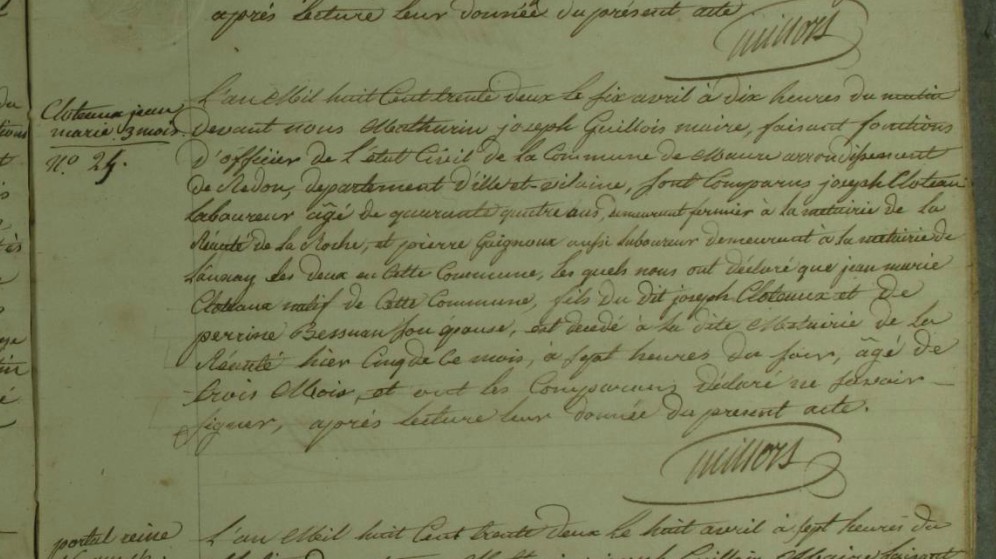 après lecture leur donnée du présent acte
Guillois
Cloteaux jean
marie 3 mois
N.o 24.
L'an Mil huit Cent trente deux le six avril à dix heures du matin
devant nous Mathurin joseph Guillois maire, faisant fonctions
d'officier de L'état Civil de la Commune de Maure arrondissement
de Redon, departement d'ille-et-vilaine, sont Comparus joseph Cloteau
laboureur âgé de quarante quatre ans, demeurant fermier à la metairie de la
de La Roche, et pierre Guignoux aussi laboureur demeurant à la metairie de
Launay les deux en Cette Commune, les quels nous ont déclaré que jean marie
Cloteaux natif de Cette Commune, fils du dit joseph Cloteaux et De
perrine son épouse, est decédé à la dite Metairie de La
hier Cinq de Ce mois, à sept heures du soir, âgé de
trois Mois, et ont les Comparans déclaré ne savoir
signer, après lecture leur donnée du present acte.
Guillois
portal reine
L'an Mil huit Cent trente deux le huit avril à sept heures du